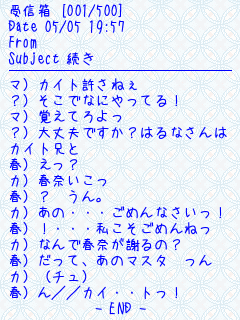 受信箱 [001/500]
Date 05/05 19:57
From
Subject 続き
マ）カイト許さねぇ
？）そこでなにやってる！
マ）覚えてろよっ
？）大丈夫ですか？はるなさんは
カイト兄と
春）えっ？
カ）春奈いこっ
春）？　うん。
カ）あの・・・ごめんなさいっ！
春）！・・・私こそごめんねっ
カ）なんで春奈が謝るの？
春）だって、あのマスタ　っん
カ）（チュ）
春）ん／／カイ・・トっ！
－ END －